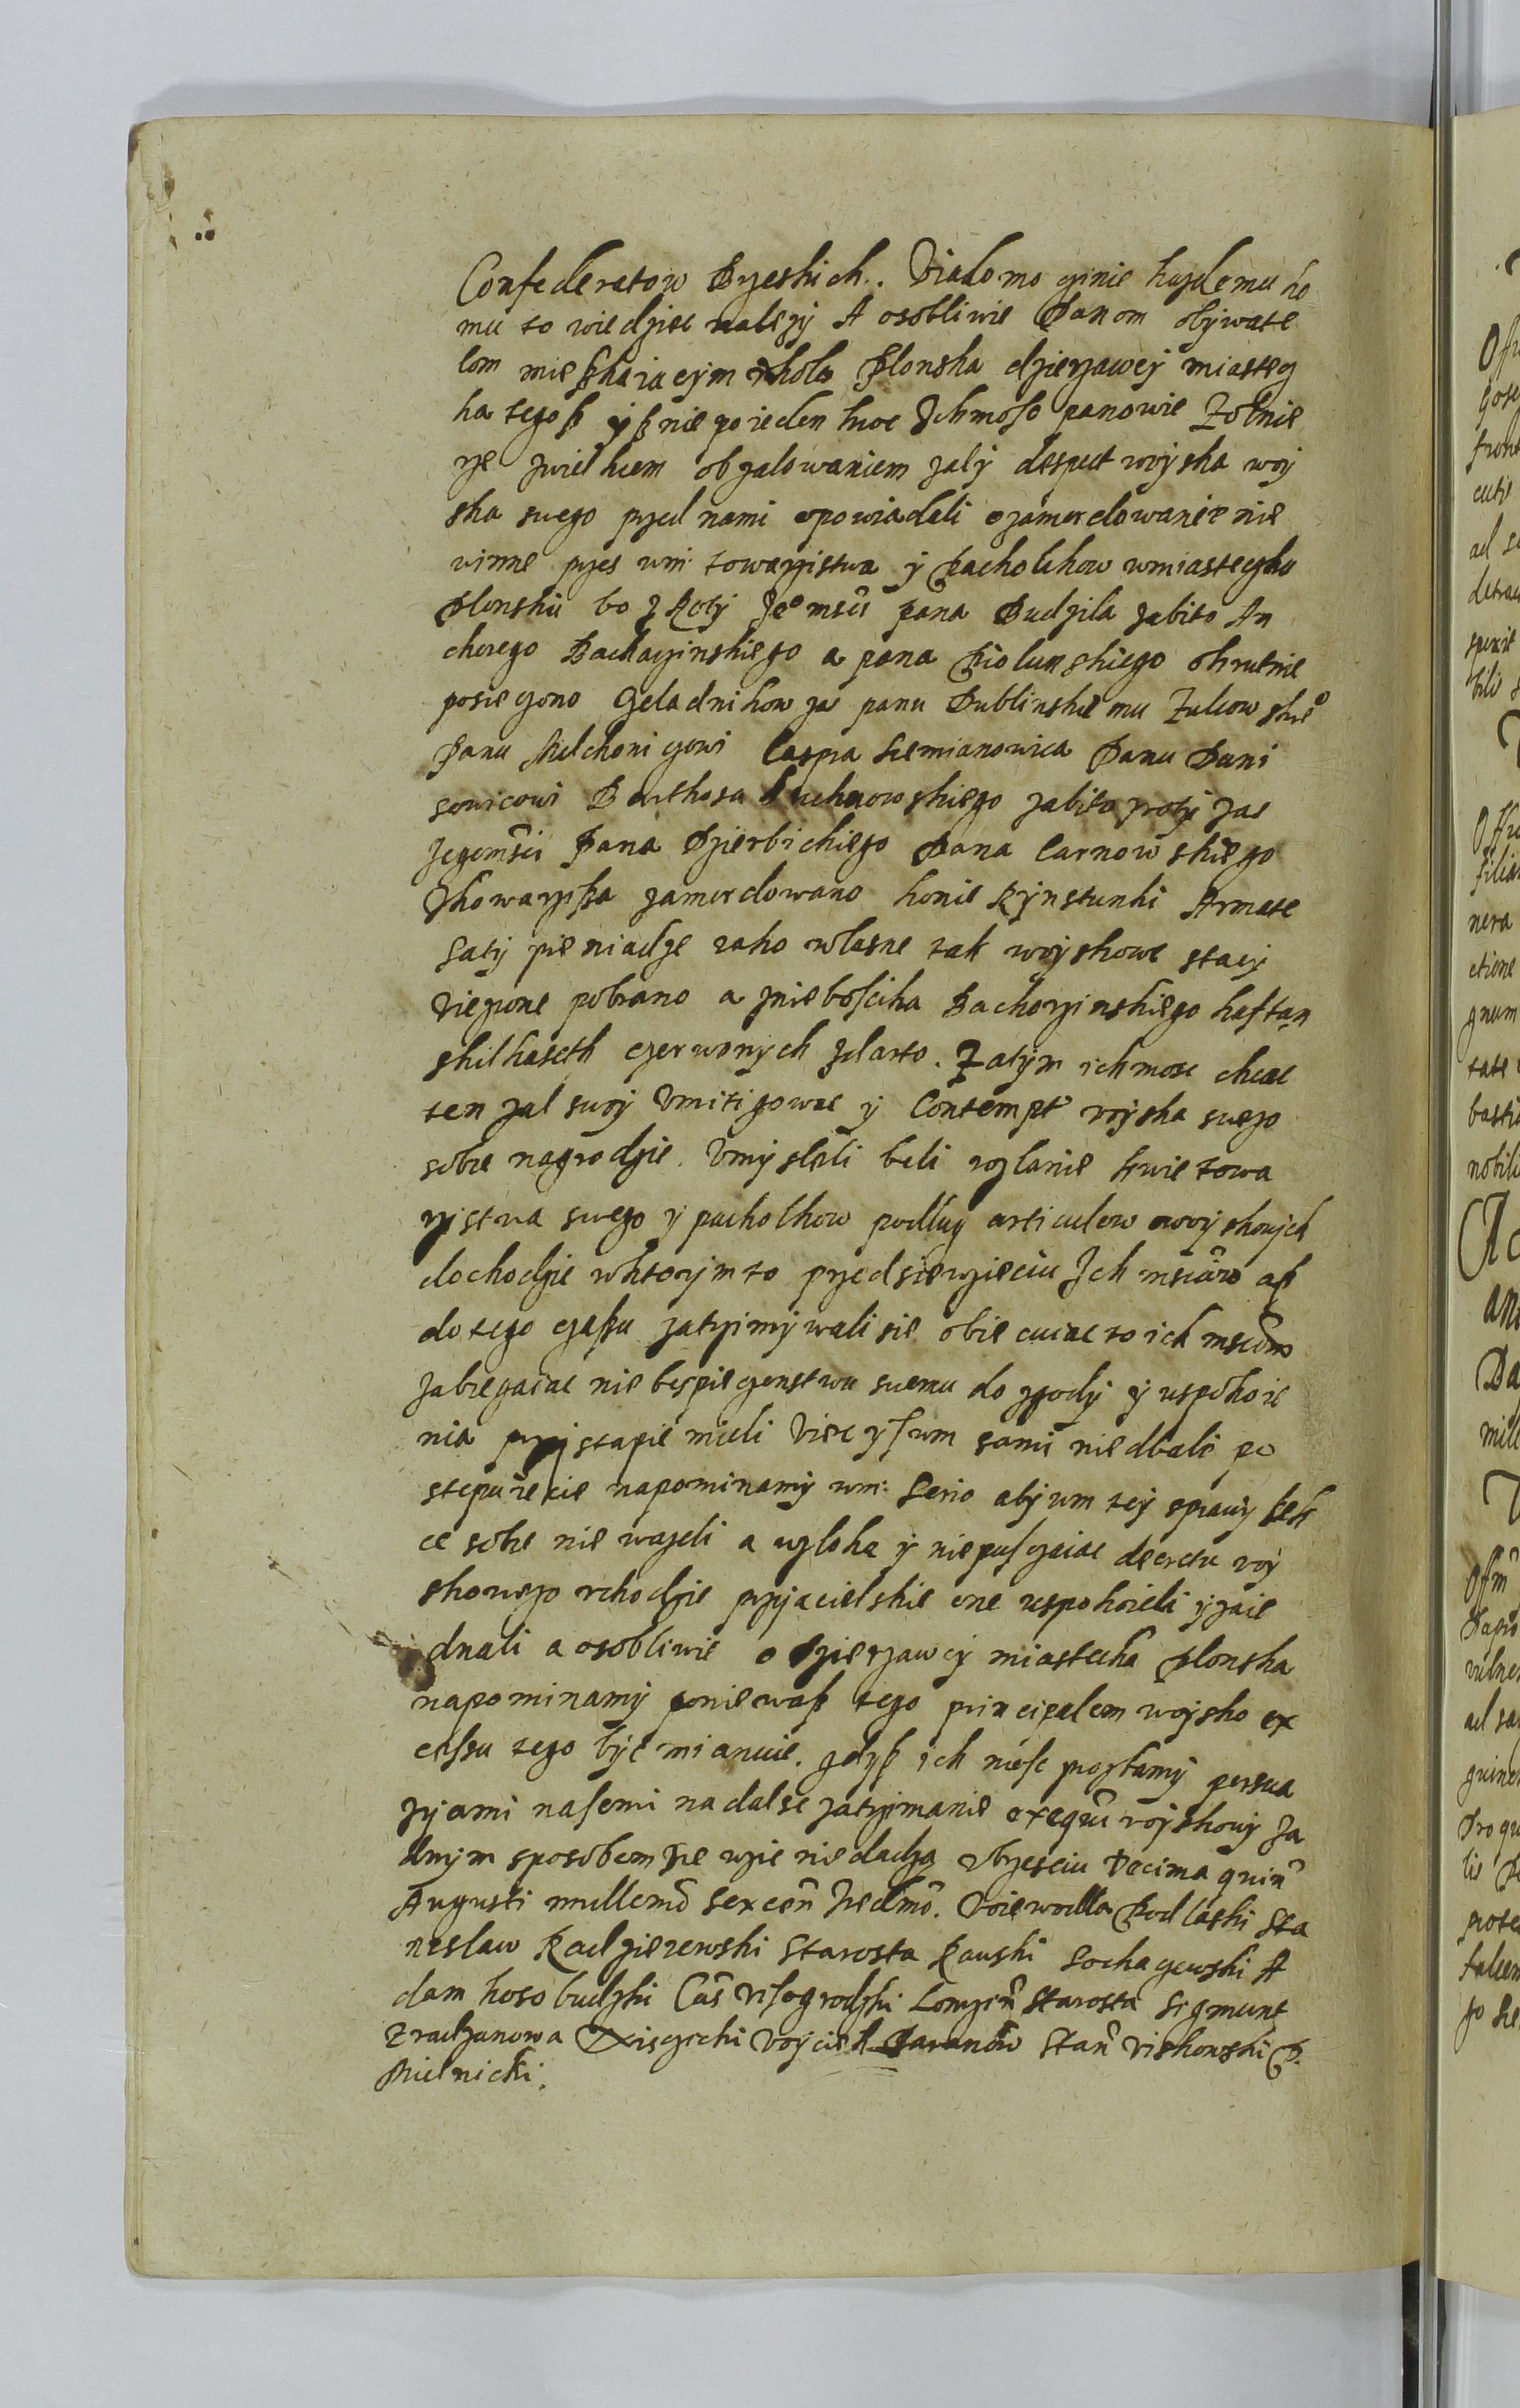 Confederatow Brzeskich. Viadomo czinie kazdemu ko
mu to wiedziec nalezÿ A osobliwie Panom obÿwate
lom mieszkaiacÿm wkolo Plonska dzierzawcÿ miastecz
ka tegosz ÿsz nie poiedenkroc Ichmosc panowie Zolnie
rze zwielkiem obzalowaniem zalÿ despect woÿska woÿ
ska swego przed nami opowiadali o zamordowanie nie
winne przes wm: towarzistwa ÿ Pacholikow wmiasteczku
Plonsku bo z Rotÿ Jeo msci pana Budzila zabito An
drzego Bachazinskiego a pana Piolunskiego okrutnie
posieczono Czeladnikow za panu Dublinskiemu Zukowskieo
Panu Milchoniczowi Caspra Siemianowica Panu Duni
sowicowi Barthosa Suchnowskiego zabito rotÿ zas
Jegomsci Pana Dzierbickiego Pana Carnowskiego
Thowarzisza zamordowano konie Rÿnstunki Armate
Satÿ pieniadze iako wlasne tak woÿskowe stacÿ
viezione pobrano a znieboscika Bachorzinskiego kaftan
skilkaseth czerwonÿch zdarto. Zatÿm ichmosc chcac
ten zal swoÿ Vmitigowac ÿ Contempt woÿska swego
sobie nagrodzic. Vmÿslili beli rozlanie krwie towa
rzistwa swego ÿ pacholkow podlug articulow woÿskowÿch
dochodzic wktorÿm to przedsiewzieciu Ich msciow asz
do tego czaszu zatrzimÿwali sie obiecuiac to ich msciom
zabiegaiac niebespieczenstwu swemu do zgodÿ ÿ uspokoie
nia przistapic mieli Viec ÿs wm sami niedbale po
stepuiecie napominamÿ wm: Serio abÿ wm teÿ sprawÿ lek
ce sobie nie wazeli a wzloka ÿ niepusczaiac decretu woÿ
skowego rchodzie przÿjacielskie one uspokoieli ÿ zaie
dnali a osobliwie o Dzierzawcÿ miastecka Plonska
napominamÿ poniewasz tego principalem woÿsko ex
cessu tego bÿc mianuie. gdÿsz ich mosc prozbamÿ persua
zÿami nasemi na dalse zatrzimanie exequtÿ woÿskowÿ za
dnÿm sposobem sie uzÿc niedadza Vbrzesciu Decima quinta
Augusti millemo sexcen Tredmo. Voiewodda Podlaski Sta
nislaw Radzieiewski Starosta Rauski Sochaczewski A
dam kosobudzki Cas visogrodzki Lomzin Starosta Sigmunt
Zradzanowa Dziezgcki Voÿciech Baranow Stan viskowski P.
Mielnicki.